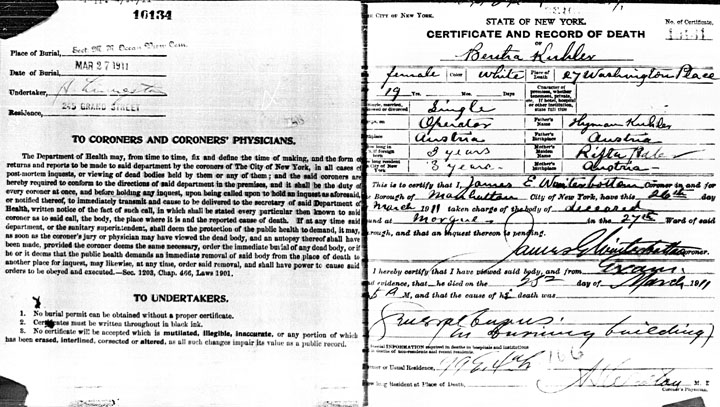 10134
Place of Burial,
Ocean View Cem.
MAR 27 1911
Date of Burial,
Undertaker,
Residence,
245 GRAND STREET
TO CORONERS AND CORONERS' PHYSICIANS.
The Department of Health may, from time to time, fix and define the time of making, and the form of
returns and reports to be made to said department by the coroners of The City of New York, in all cases of
post-mortem inquests, or viewing of dead bodies held by them or any of them; and the said coroners are
hereby required to conform to the directions of said department in the premises, and it shall be the duty of
every coroner at once, and before holding any inquest, upon being called upon to hold an inquest as aforesaid,
or notified thereof, to immediately transmit and cause to be delivered to the secretary of said Department of
Health, written notice of the fact of such call, in which shall be stated every particular then known to said
coroner as to said call, the body, the place where it is and the reported cause of death. If at any time said
department, or the sanitary superintendent, shall deem the protection of the public health to demand, it may,
as soon as the coroner's jury or physician may have viewed the dead body, and an autopsy thereof shall have
been made, provided the coroner deems the same necessary, order the immediate burial of any dead body, or if
he or it deems that the public health demands an immediate removal of said body from the place of death to
another place for inquest, may likewise, at any time, order said removal, and shall have power to cause said
orders to be obeyed and executed.—Sec. 1203, Chap. 466, Laws 1901.
TO UNDERTAKERS.
1. No burial permit can be obtained without a proper certificate.
2. Certificates must be written throughout in black ink.
3. No certificate will be accepted which is mutilated, illegible, inaccurate, or any portion of which
has been erased, interlined, corrected or altered, as all such changes impair its value as a public record.
THE CITY OF NEW YORK.
STATE OF NEW YORK.
No. of Certificate,
CERTIFICATE AND RECORD OF DEATH
OF
Bertha Kuhler
female Color White Place of Death 27 Washington Place
19 Yrs. Mos. Days
Character of premises, whether tenement, private, etc. If hotel, hospital or other institution, state full title
Single
Operator Father's Name Hyman Kuhler
Austria Father's Birthplace Austria
3 years Mother's Name Rifka
3 years Mother's Birthplace Austria
This is to certify that I, James E Winterbottom Coroner in and for
Borough of Manhattan City of New York, have this 26th day
March 1911 taken charge of the body of deceased
found at Morgue in the 27th Ward of said
Borough, and that an inquest thereon is pending.
James E Winterbottom Coroner.
I hereby certify that I have viewed said body, and from
and evidence, that he died on the 25th day of March 1911
M, and that the cause of his death was
in burning building)
Special INFORMATION required in deaths in hospitals and institutions
in deaths of non-residents and recent residents.
Former or Usual Residence,
How long Resident at Place of Death,
M. D.
Coroner's Physician.